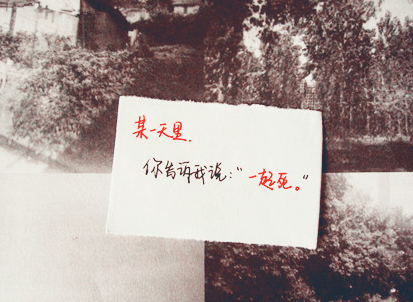 某一天里.
你告诉我说:"一起死。"